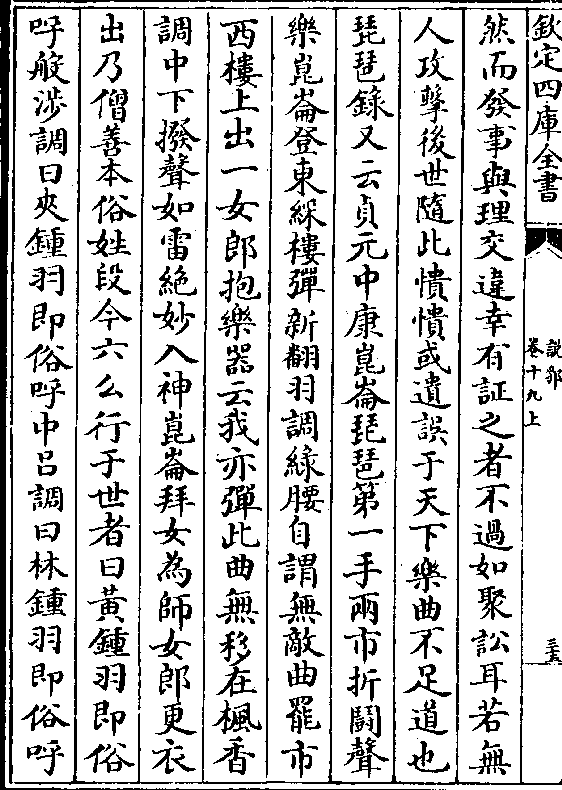 欽定四庫全書
說郛
卷十九上
三十五
然而發事與理交違幸有証之者不過如聚訟耳若無
人攻擊後世隨此憒憒或遺誤于天下樂曲不足道也
琵琶錄又云貞元中康崑崙琵琶第一手兩市折鬪聲
樂崑崙登東綵樓彈新翻羽調綠腰自謂無敵曲罷市
西樓上出一女郎抱樂器云我亦彈此曲無移在楓香
調中下撥聲如雷絶妙入神崑崙拜女為師女郎更衣
出乃僧善本俗姓段今六么行于世者曰黃鍾羽即俗
呼般涉調曰夾鍾羽即俗呼中呂調曰林鍾羽即俗呼